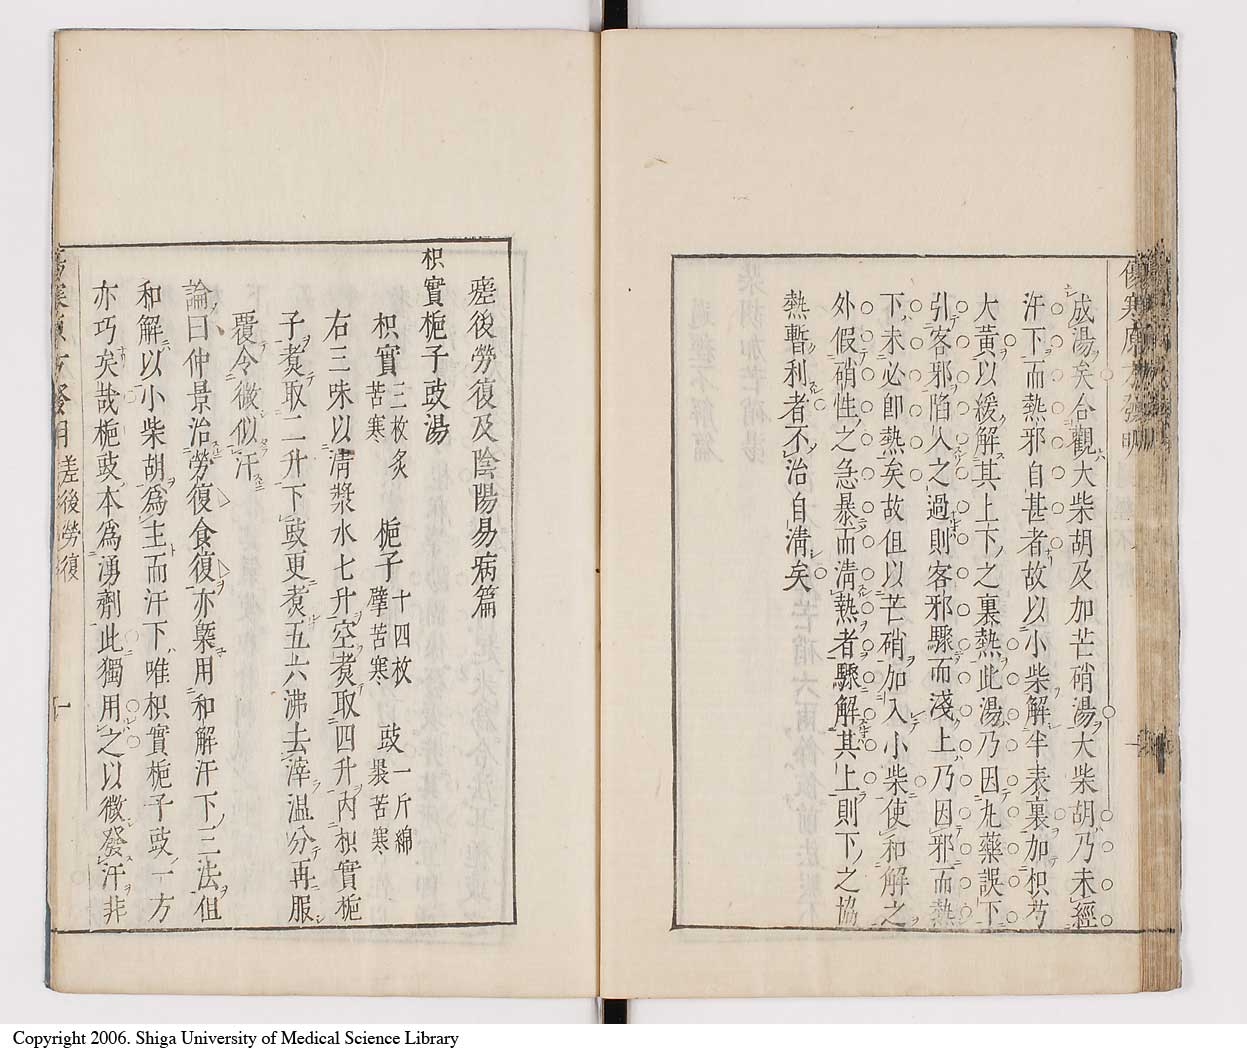 傷寒原方發明
成湯矣合觀大柴胡及加芒硝湯大柴胡乃未經
汗下而熱邪自甚者故以小柴解半表裏加枳芍
大黃以緩解其上下之裏熱此湯乃因丸藥誤下
引客邪陷入之過則客邪驟而淺上乃因邪而熱
下未必卽熱矣故但以芒硝加入小柴使和解之
外假硝性之急暴而清熱者驟解其上則下之協
熱暫利者不治自清矣
瘥後勞復及陰陽易病篇
枳實梔子豉湯
枳實 三枚炙苦寒 梔子 十四枚擘苦寒 豉 一斤綿裹苦寒
右三味以清漿水七升空煮取四升內枳實梔
子煮取二升下豉更煮五六沸去滓温分再服
覆令微似汗
論曰仲景治勞復食復亦槩用和解汗下三法但
和解以小柴胡爲主而汗下唯枳實梔子豉一方
亦巧矣哉梔豉本爲湧劑此獨用之以微發汗非
傷寒原方發明 差後勞復 一
Copyright 2006. Shiga University of Medical Science Library